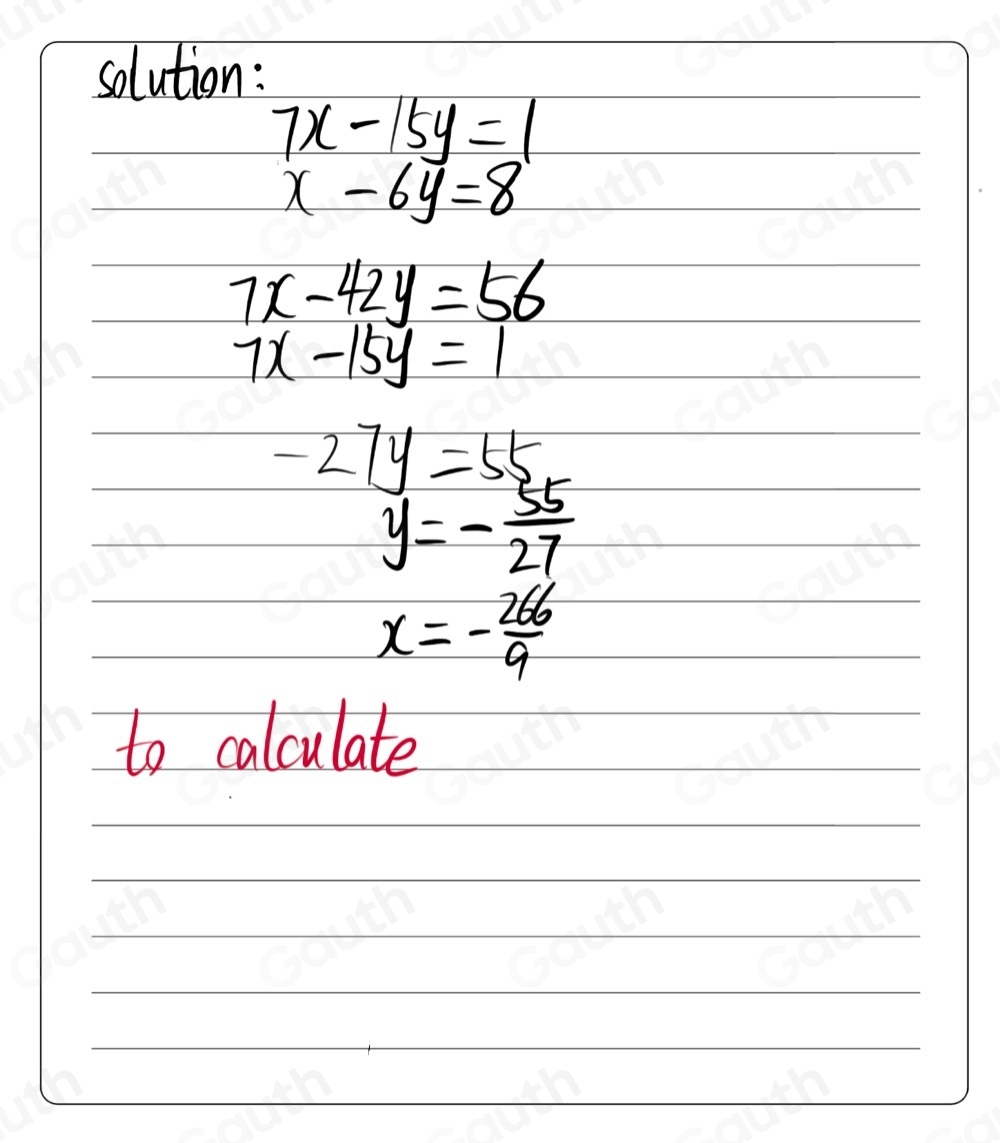 solution:
7x - 15y = 1
x - 6y = 8
7x - 42y = 56
7x - 15y = 1
-27y = 55
y = - 55/27
x = - 266/9
to calculate
Gauth